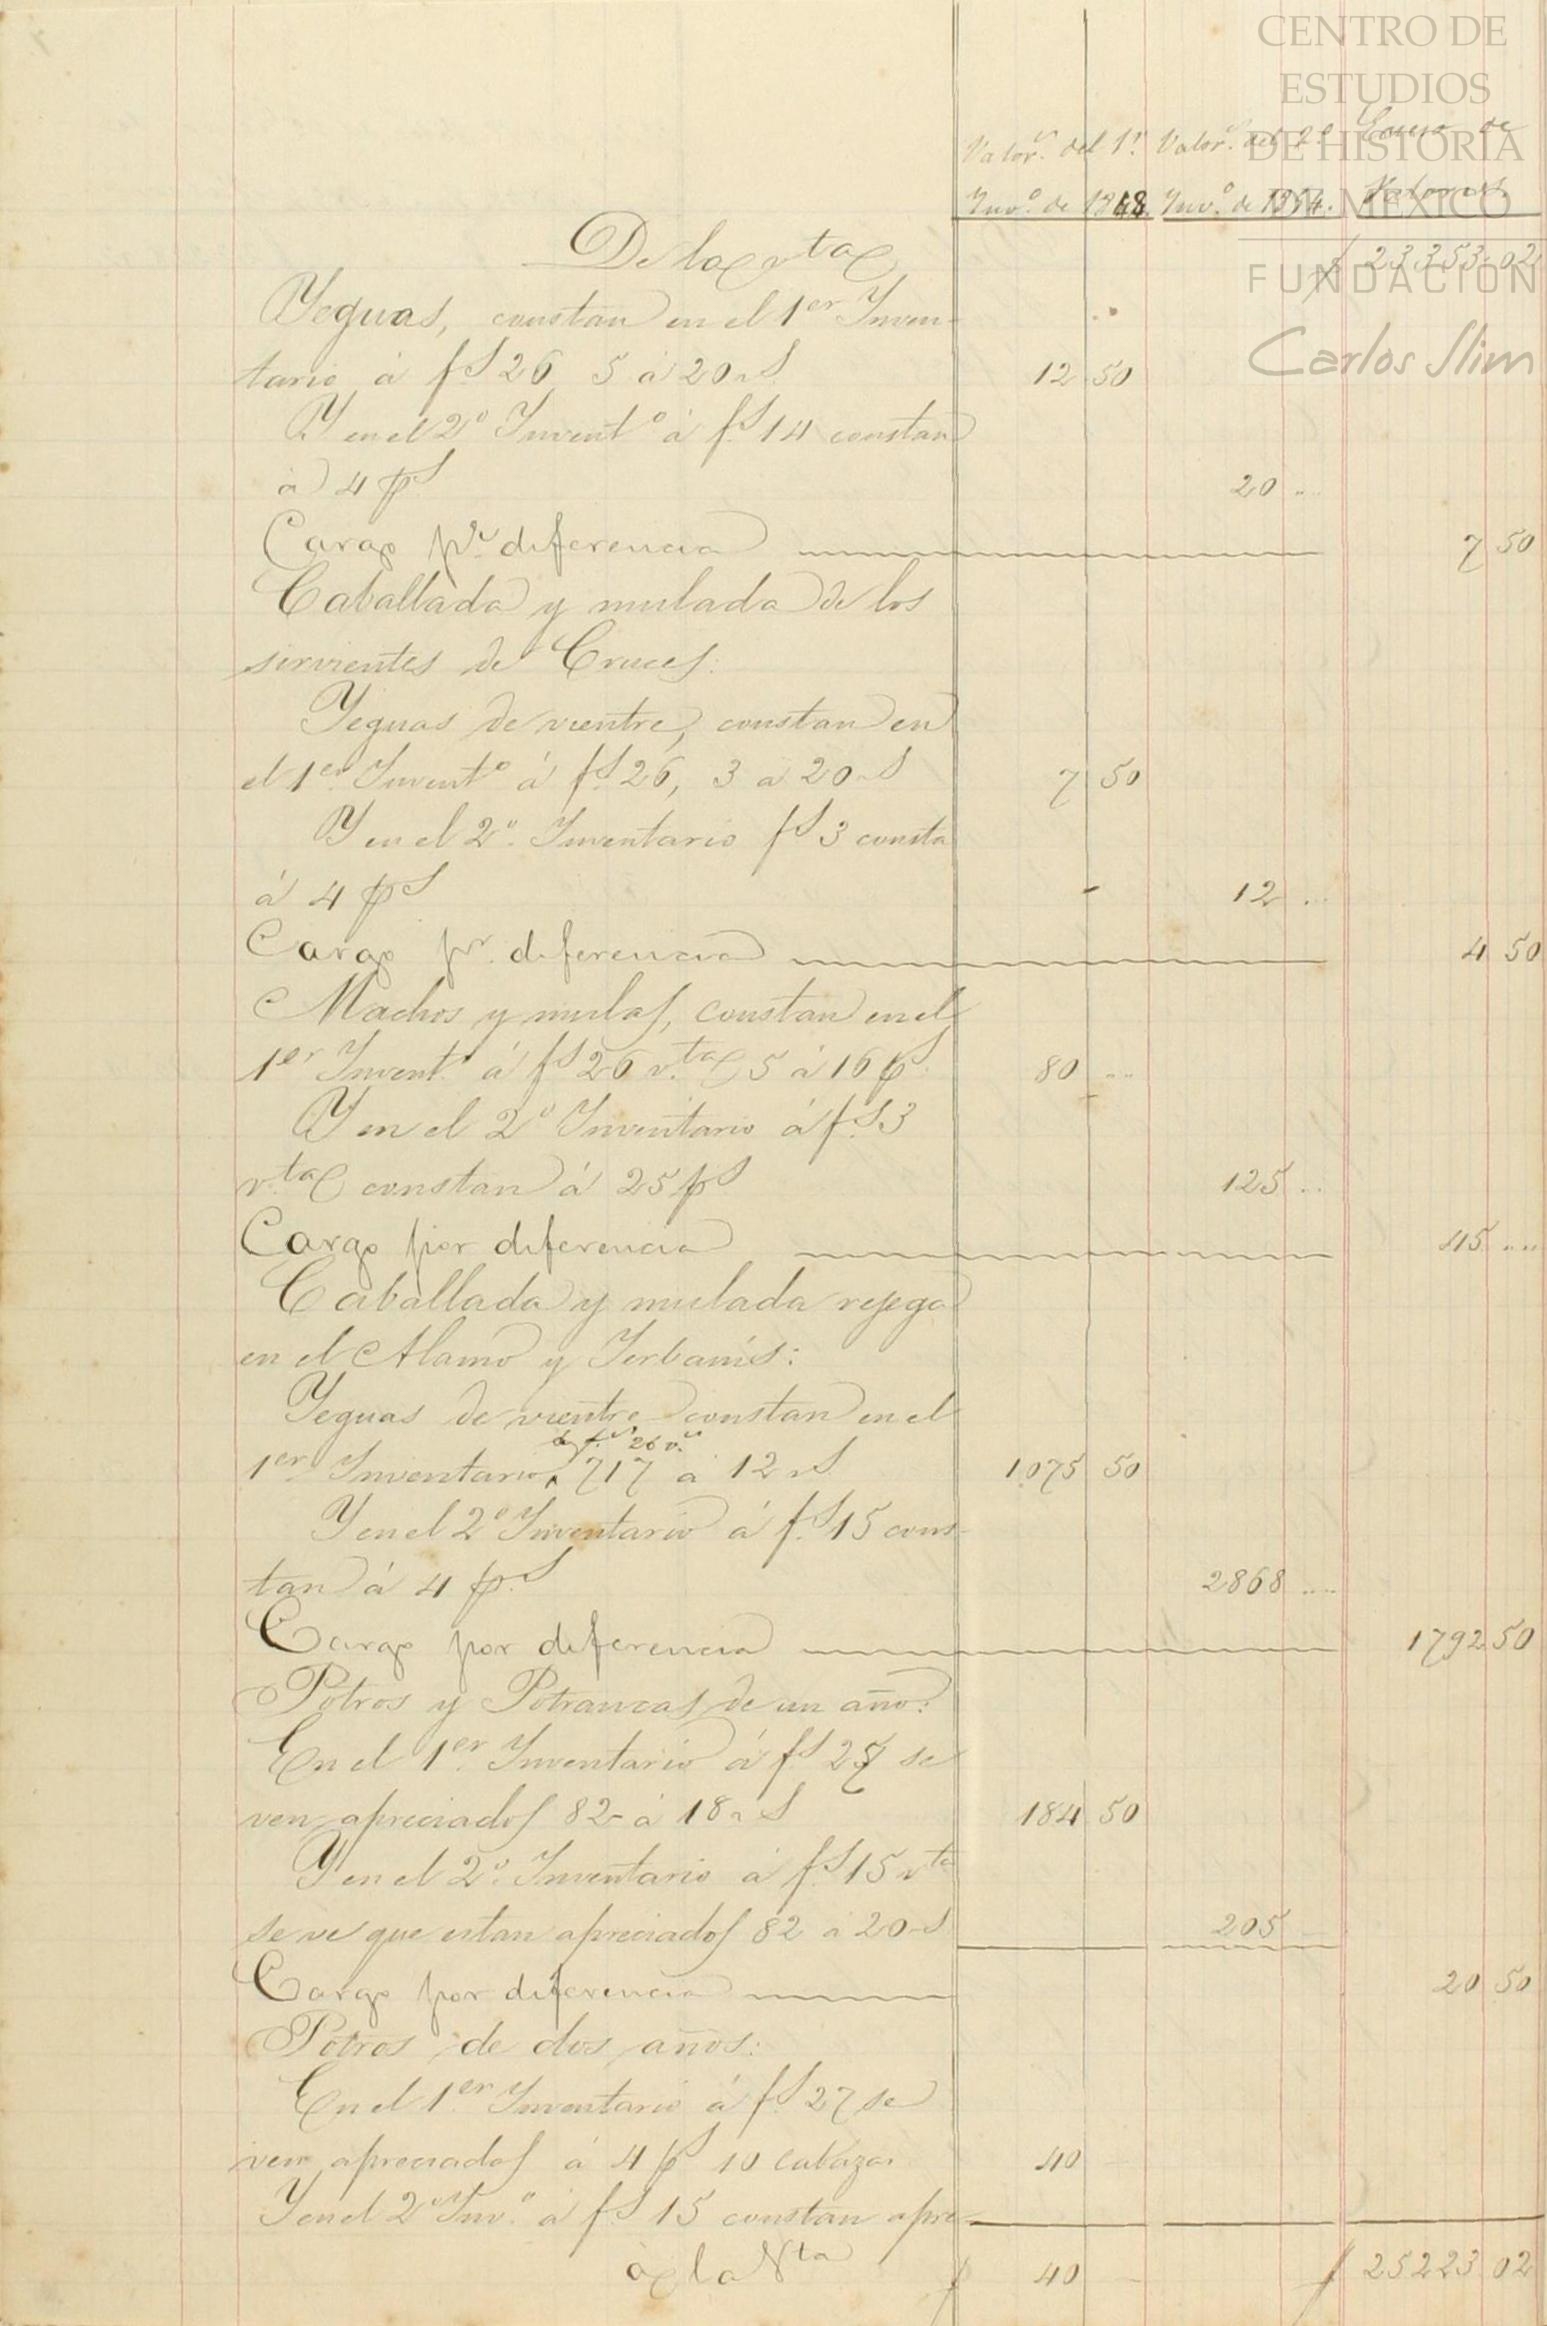 CENTRO DE
ESTUDIOS
DE HISTORIA
DE MEXICO
FUNDACIÓN
Carlos Slim
Valor.s del 1.r Valor.s del 2.o de
Inv.o de 1868. Inv.o de 1874.
De la vta $ 23353 02
Yeguas, constan en el 1er Inven-
tario á fs 26 5 á 20 rs 12 50
Y en el 2o Invent.o á fs 14 constan
á 4 ps 20 ..
Cargo pr. diferencia 7 50
Caballada y mulada de los
sirvientes de Cruces:
Yeguas de vientre, constan en
el 1er Invent.o á fs 26, 3 á 20 rs 7 50
Y en el 2o. Inventario fs 3 consta
á 4 ps 12 ..
Cargo pr. diferencia 4 50
Machos y mulas, constan en el
1er Invent.o á fs 26 v.ta 5 á 16 ps 80 ....
Y en el 2o Inventario á fs 3
v.ta constan á 25 ps 125 ..
Cargo por diferencia 45 ....
Caballada y mulada rejega
en el Alamo y Yerbanís:
Yeguas de vientre constan en el
á f.s 26 v.ta
1er Inventario, 717 á 12 rs 1075 50
Y en el 2o Inventario á fs 15 cons-
tan á 4 ps 2868 ....
Cargo por diferencia 1792 50
Potros y Potrancas de un año:
En el 1er. Inventario á fs 27 se
ven apreciados 82 á 18 rs 184 50
Y en el 2o. Inventario á fs 15 vta
se ve que estan apreciados 82 á 20 rs 205
Cargo por diferencia 20 50
Potros de dos años:
En el 1er. Inventario á fs 27 se
ven apreciados á 4 ps 10 cabezas 40
Y en el 2o Inv.o á fs 15 constan apre-
á la Vta $ 40 $ 25223 02